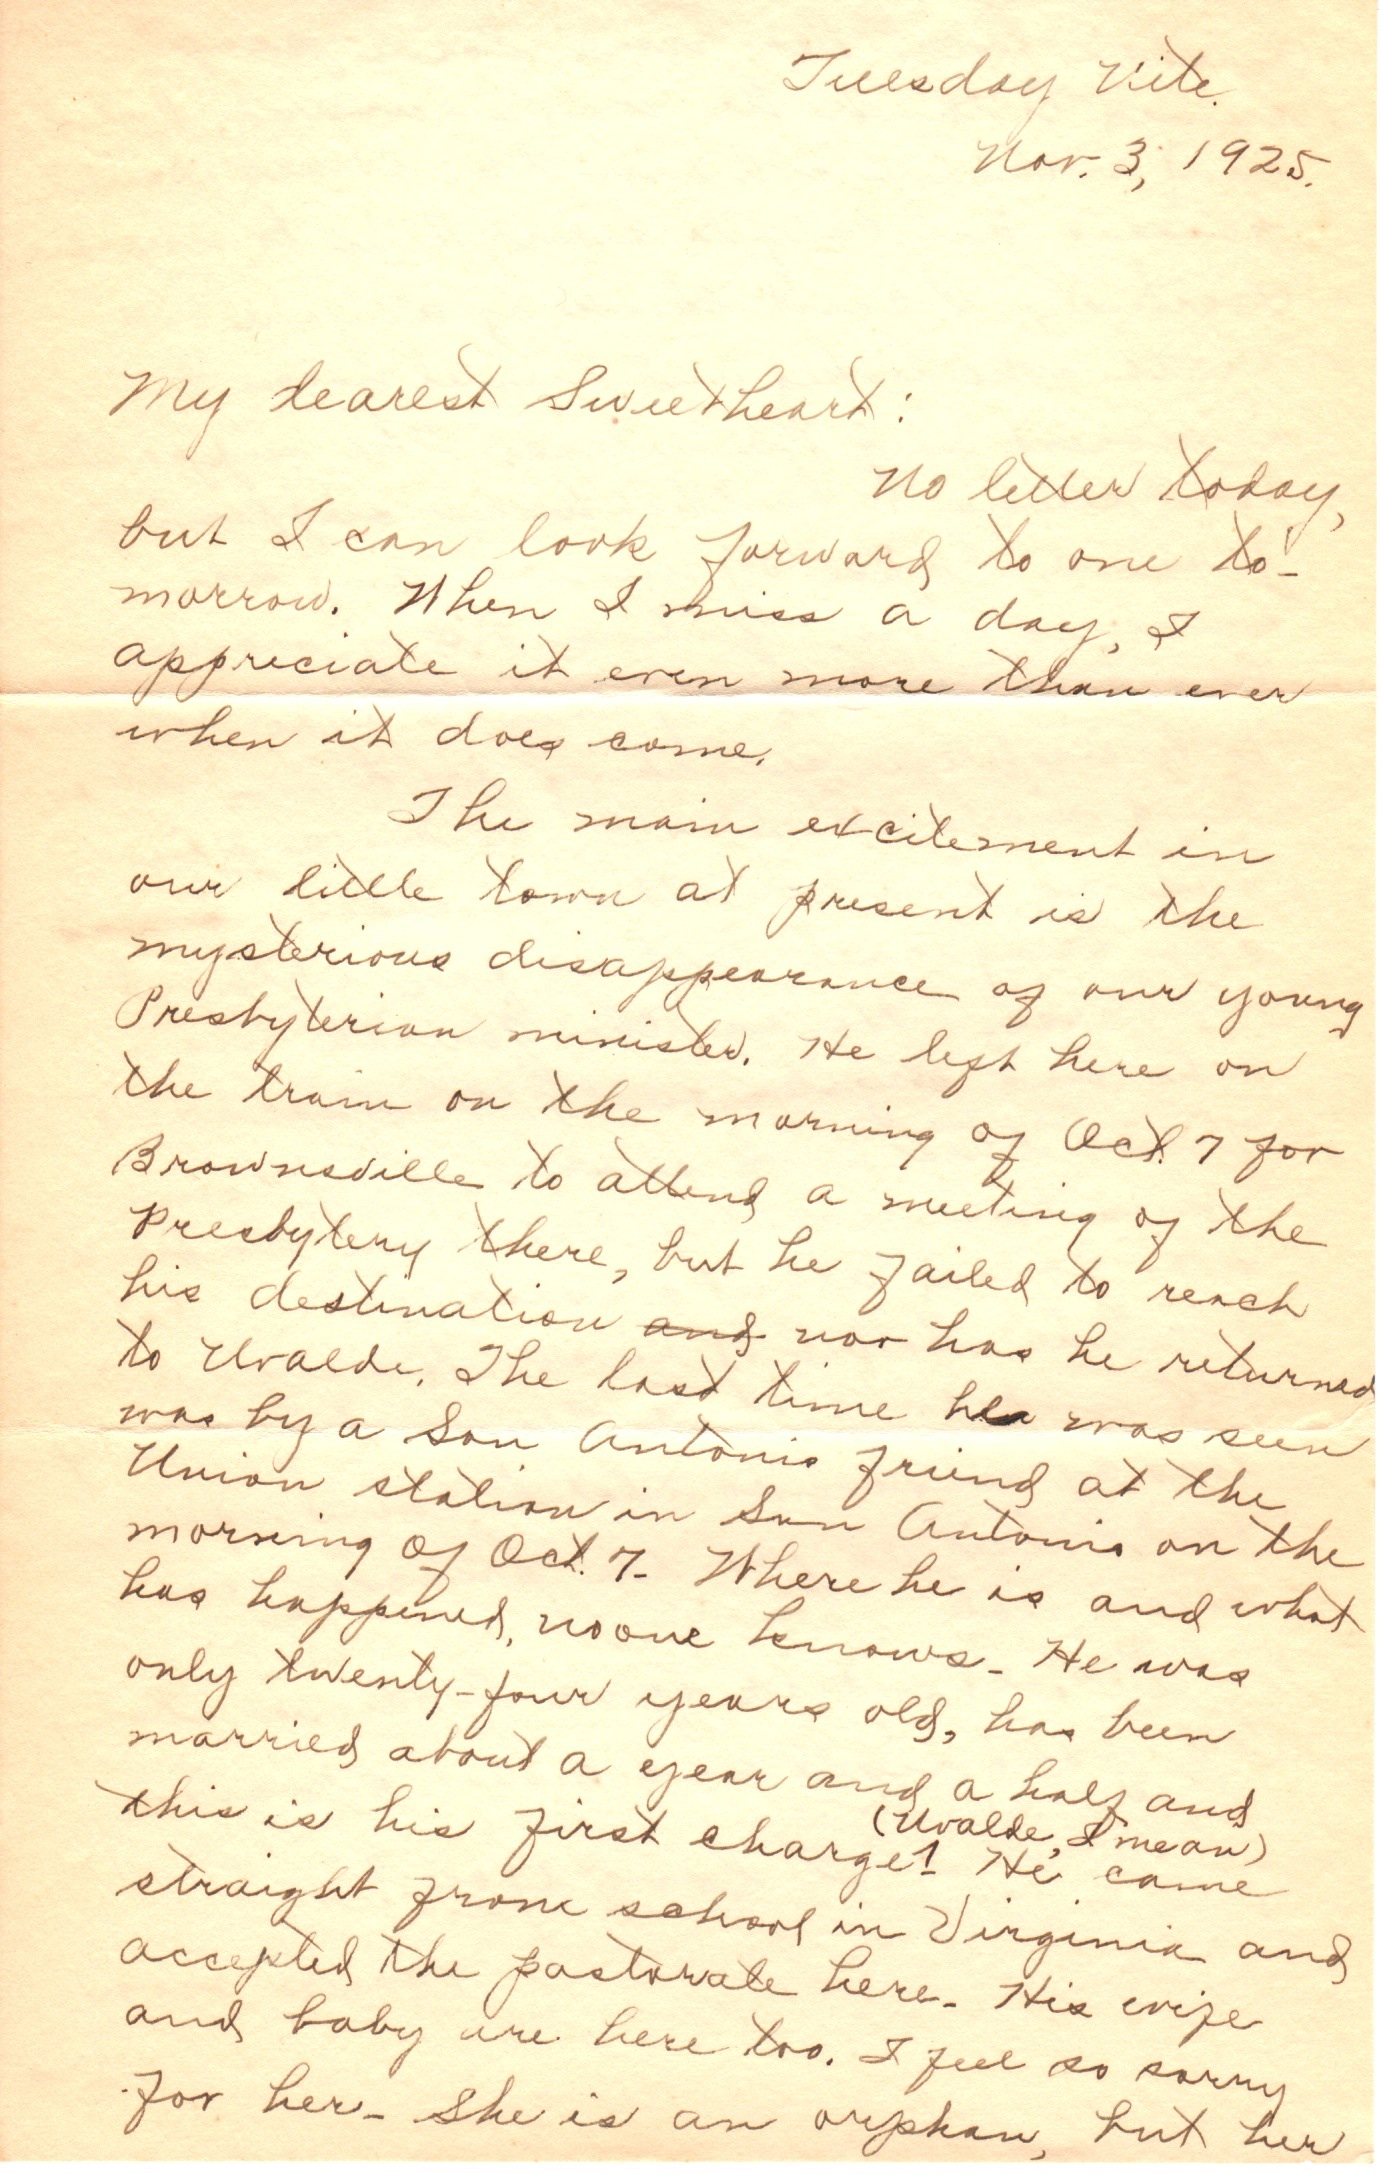 Tuesday Nite.
Nov. 3, 1925.
My dearest Sweetheart:
No letter today,
but I can look forward to one to-
morrow. When I miss a day, I
appreciate it even more than ever
when it does come.
The main excitement in
our little town at present is the
mysterious disappearance of our young
Presbyterian minister. He left here on
the train on the morning of Oct. 7 for
Brownsville to attend a meeting of the
Presbytery there, but he failed to reach
his destination and nor has he returned
to Uvalde. The last time he was seen
was by a San Antonio friend at the
Union station in San Antonio on the
morning of Oct. 7. Where he is and what
has happened, no one knows. He was
only twenty-four years old, has been
married about a year and a half and
this is his first charge! (Uvalde, I mean) He came
straight from school in Virginia and
accepted the pastorate here. His wife
and baby are here too. I feel so sorry
for her. She is an orphan, but her